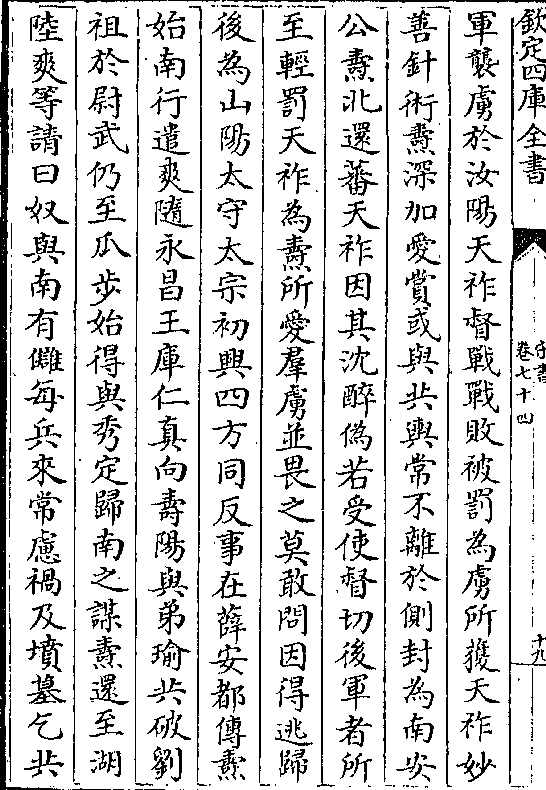 欽定四庫全書
宋書
卷七十四
十九
軍襲虜於汝陽天祚督戰戰敗被罰為虜所獲天祚妙
善針術燾深加愛賞或與共輿常不離於側封為南安
公燾北還蕃天祚因其沈醉偽若受使督切後軍者所
至輕罰天祚為燾所愛羣虜並畏之莫敢問因得逃歸
後為山陽太守太宗初興四方同反事在薛安都傳燾
始南行遣爽隨永昌王庫仁真向壽陽與弟瑜共破劉
祖於尉武仍至瓜步始得與秀定歸南之謀燾還至湖
陸爽等請曰奴與南有讎每兵來常慮禍及墳墓乞共